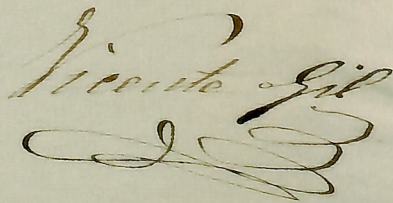 Vicente Gil